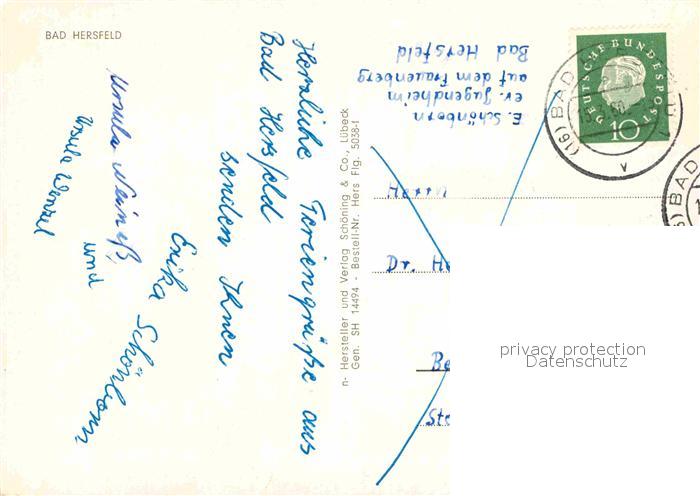 BAD HERSFELD
Herzliche Feriengrüße aus
Bad Hersfeld
senden Ihnen
Erika Schönborn
Ursula
und
Ursula Wenzel
n- Hersteller und Verlag Schöning & Co., Lübeck
Gen. SH 14494 - Bestell-Nr. Hers Flg. 5038-1
E. Schönborn
ev. Jugendheim
auf dem Frauenberg
Bad Hersfeld
DEUTSCHE BUNDESPOST
10
(16) BAD
BAD
Dr. He
Be
Ste
privacy protection
Datenschutz